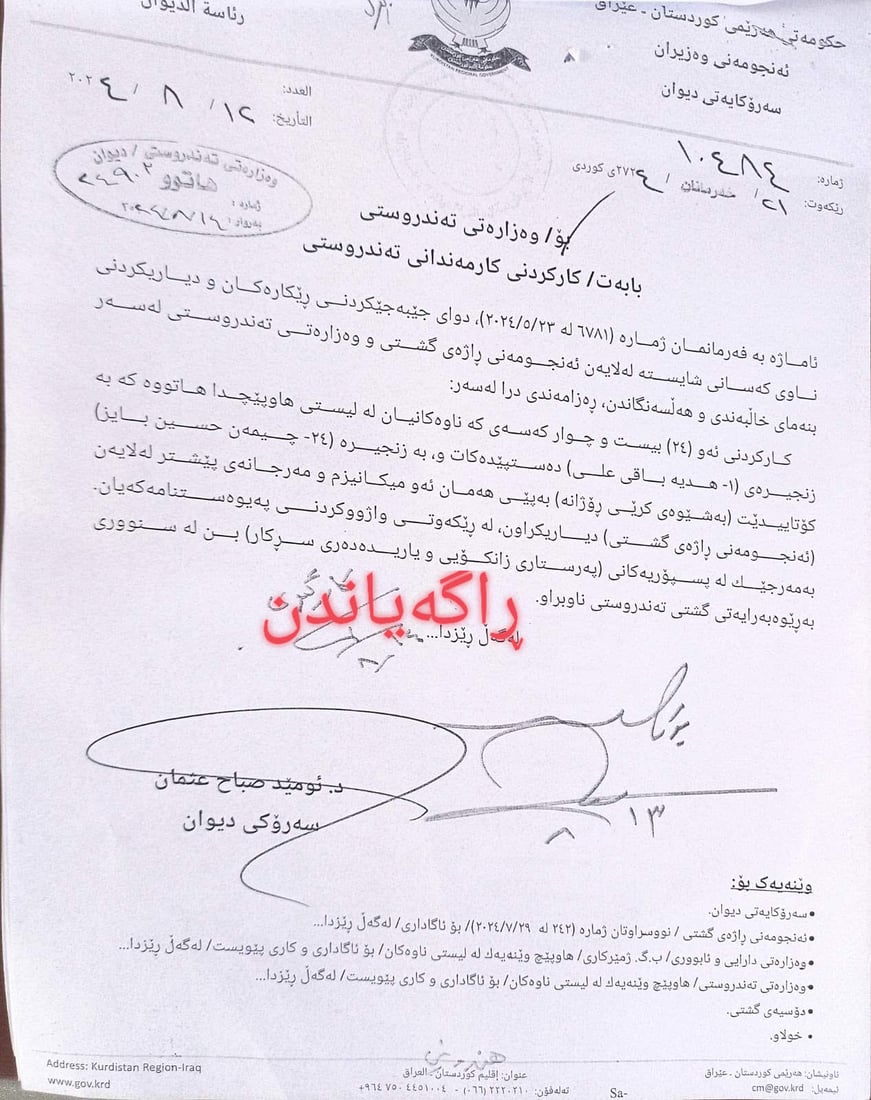 حکومەتی هەرێمی کوردستان - عێراق
ئەنجومەنی وەزیران
سەرۆکایەتی دیوان
رئاسة الديوان
KURDISTAN REGIONAL GOVERNMENT
العدد:
التأريخ: ١٢ / ٨ / ٢٠٢٤
ژمارە: ١٠٤٨٤
رێکەوت: ٢١ / خەرمانان / ٢٧٢٤ی کوردی
وەزارەتی تەندروستی / دیوان
هاتوو
ژمارە:
بەروار:
بۆ/ وەزارەتی تەندروستی
بابەت/ کارکردنی کارمەندانی تەندروستی
ئاماژە بە فەرمانمان ژمارە (٦٧٨١ لە ٢٠٢٤/٥/٢٣)، دوای جێبەجێکردنی ڕێکارەکان و دیاریکردنی
ناوی کەسانی شایستە لەلایەن ئەنجومەنی ڕاژەی گشتی و وەزارەتی تەندروستی لەسەر
بنەمای خاڵبەندی و هەڵسەنگاندن، ڕەزامەندی درا لەسەر:
کارکردنی ئەو (٢٤) بیست و چوار کەسەی کە ناوەکانیان لە لیستی هاوپێچدا هاتووە کە بە
زنجیرەی (١- هدیە باقی علی) دەستپێدەکات و، بە زنجیرە (٢٤- چیمەن حسین بایز)
کۆتاییدێت (بەشێوەی کرێی ڕۆژانە) بەپێی هەمان ئەو میکانیزم و مەرجانەی پێشتر لەلایەن
(ئەنجومەنی ڕاژەی گشتی) دیاریکراون، لە ڕێکەوتی واژووکردنی پەیوەستنامەکەیان.
بەمەرجێك لە پسپۆریەکانی (پەرستاری زانکۆیی و یاریدەدەری سڕکار) بن لە سنووری
بەڕێوەبەرایەتی گشتی تەندروستی ناوبراو.
لەگەڵ ڕێزدا...
ڕاگەیاندن
١٣
٨
د. ئومێد صباح عثمان
سەرۆکی دیوان
وێنەیەک بۆ:
•سەرۆکایەتی دیوان.
•ئەنجومەنی ڕاژەی گشتی / نووسراوتان ژمارە (٢٤٢ لە ٢٠٢٤/٧/٢٩)/ بۆ ئاگاداری/ لەگەڵ ڕێزدا...
•وەزارەتی دارایی و ئابووری/ ب.گ. ژمێرکاری/ هاوپێچ وێنەیەك لە لیستی ناوەکان/ بۆ ئاگاداری و کاری پێویست/ لەگەڵ ڕێزدا...
•وەزارەتی تەندروستی/ هاوپێچ وێنەیەك لە لیستی ناوەکان/ بۆ ئاگاداری و کاری پێویست/ لەگەڵ ڕێزدا...
•دۆسیەی گشتی.
• خولاو.
ناونیشان: هەرێمی کوردستان - عێراق
عنوان: إقليم كوردستان - العراق
Address: Kurdistan Region-Iraq
ئیمەیل: cm@gov.krd
Sa-
تەلەفۆن: ٢٢٢٠٢١٠ (٠٦٦) - ٤٤٥١٠٠٤ ٧٥٠ ٩٦٤+
www.gov.krd